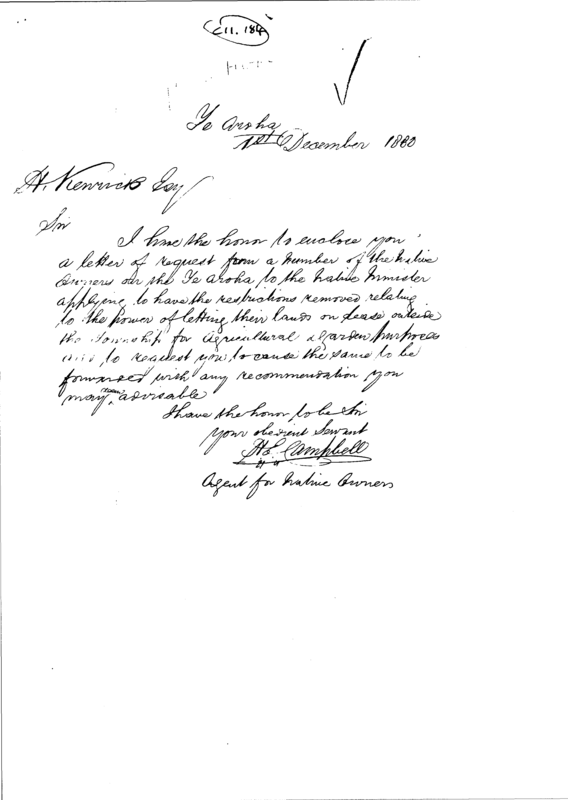 C11.184
Te Aroha
1st December 1880
H. Kenrick Esq
Sir
I have the honor to enclose you
a letter of request from a number of the Native
Owners on the Te Aroha to the Native Minister
applying to have the restrictions removed relating
to the power of letting their lands on lease outside
the Township for Agricultural & garden purposes
to request you to cause the same to be
forwarded with any recommendation you
may deem advisable
I have the honor to be Sir
your obedient Servant
H E Campbell
Agent for Native Owners